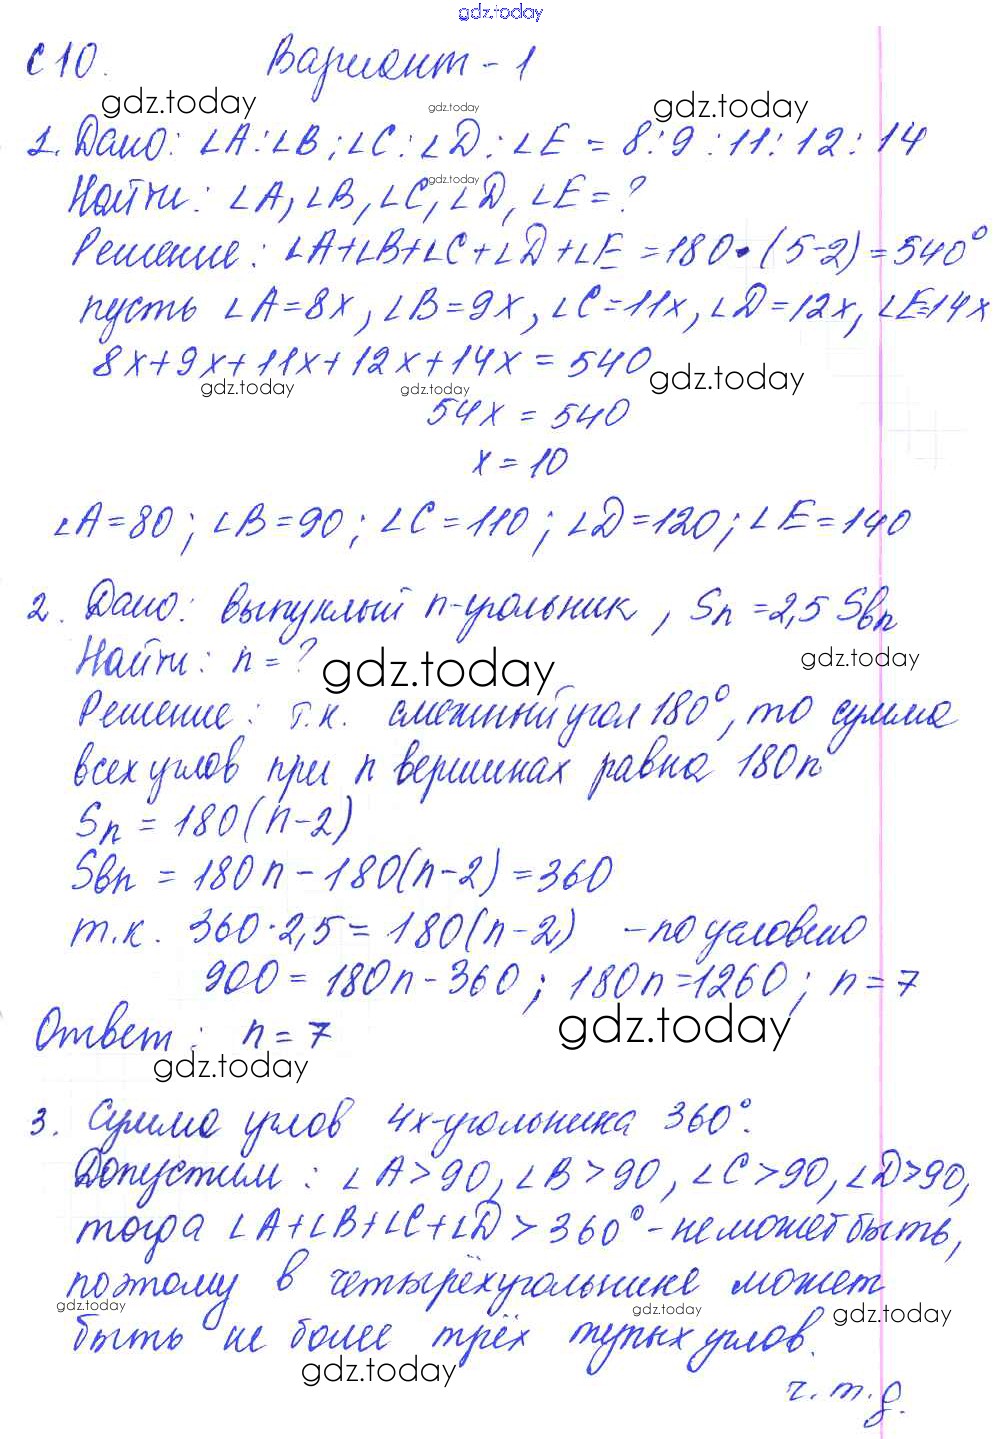 gdz.today
С 10. Вариант - 1
gdz.today gdz.today gdz.today
1. Дано: ∠A : ∠B : ∠C : ∠D : ∠E = 8 : 9 : 11 : 12 : 14
gdz.today
Найти: ∠A, ∠B, ∠C, ∠D, ∠E = ?
Решение: ∠A+∠B+∠C+∠D+∠E = 180·(5-2) = 540°
пусть ∠A=8x, ∠B=9x, ∠C=11x, ∠D=12x, ∠E=14x
8x+9x+11x+12x+14x = 540
gdz.today gdz.today gdz.today
54x = 540
x = 10
∠A=80; ∠B=90; ∠C=110; ∠D=120; ∠E=140
2. Дано: выпуклый n-угольник, Sn = 2,5 Sвn
Найти: n = ?
gdz.today gdz.today
Решение: т.к. смежный угол 180°, то сумма
всех углов при n вершинах равна 180n
Sn = 180(n-2)
Sвn = 180n - 180(n-2) = 360
т.к. 360·2,5 = 180(n-2) - по условию
900 = 180n - 360; 180n = 1260; n = 7
gdz.today
Ответ: n = 7
gdz.today
3. Сумма углов 4х-угольника 360°.
Допустим: ∠A>90, ∠B>90, ∠C>90, ∠D>90,
тогда ∠A+∠B+∠C+∠D > 360° - не может быть,
поэтому в четырёхугольнике может
gdz.today gdz.today gdz.today
быть не более трёх тупых углов.
gdz.today
ч.т.д.